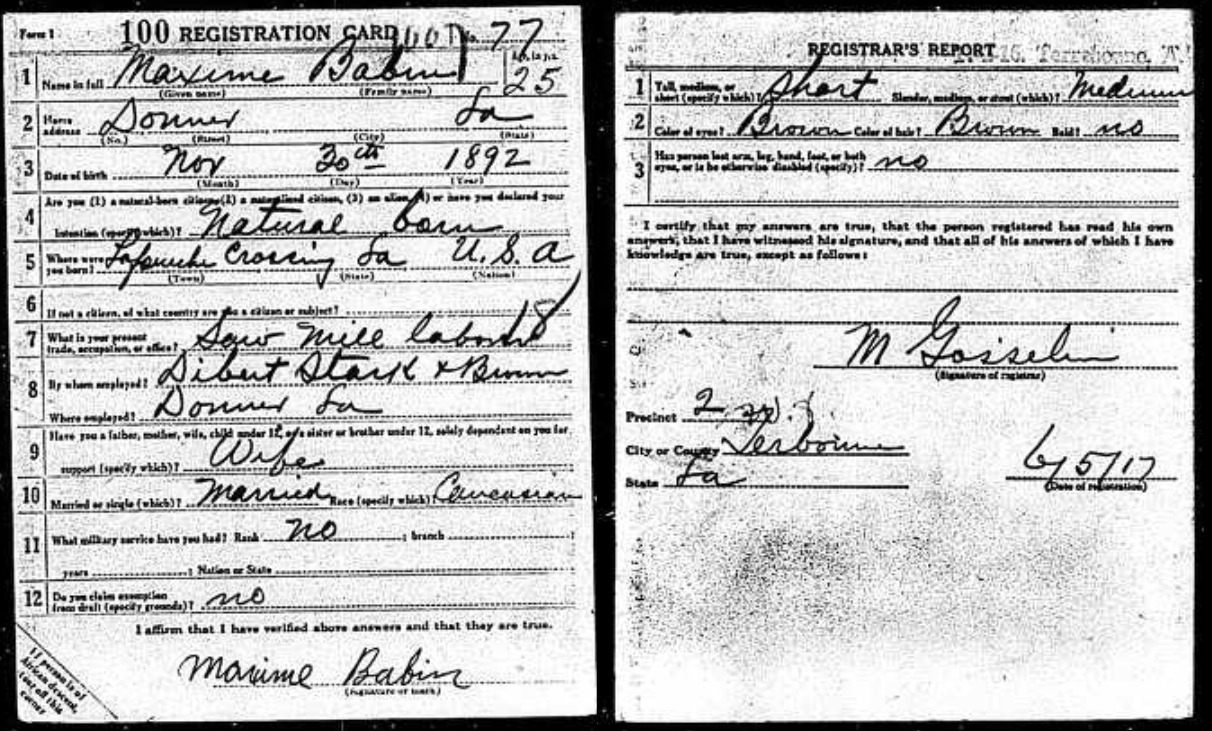 Form 1
100 REGISTRATION CARD No. 77
1 Name in full Maxime Babin Age, in yrs. 25
(Given name) (Family name)
2 Home address Donner La
(No.) (Street) (City) (State)
3 Date of birth Nov 30th 1892
(Month) (Day) (Year)
4 Are you (1) a natural-born citizen, (2) a naturalized citizen, (3) an alien, (4) or have you declared your
intention (specify which)? Natural born
5 Where were you born? Lafourche Crossing La U.S.A
(Town) (State) (Nation)
6 If not a citizen, of what country are you a citizen or subject?
7 What is your present trade, occupation, or office? Saw mill laborer 18
8 By whom employed? Dibert Stark & Brown
Where employed? Donner La
9 Have you a father, mother, wife, child under 12, or a sister or brother under 12, solely dependent on you for
support (specify which)? Wife
10 Married or single (which)? Married Race (specify which)? Caucasian
11 What military service have you had? Rank no ; branch ;
years ; Nation or State
12 Do you claim exemption from draft (specify grounds)? no
I affirm that I have verified above answers and that they are true.
Maxime Babin
(Signature or mark)
If person is of
African descent,
tear off this
corner
REGISTRAR'S REPORT
1 Tall, medium, or short (specify which)? Short Slender, medium, or stout (which)? Medium
2 Color of eyes? Brown Color of hair? Brown Bald? no
3 Has person lost arm, leg, hand, foot, or both
eyes, or is he otherwise disabled (specify)? no
I certify that my answers are true, that the person registered has read his own
answers, that I have witnessed his signature, and that all of his answers of which I have
knowledge are true, except as follows:
M Gosselin
(Signature of registrar)
Precinct 2
City or County Terbonne
State La
6/5/17
(Date of registration)